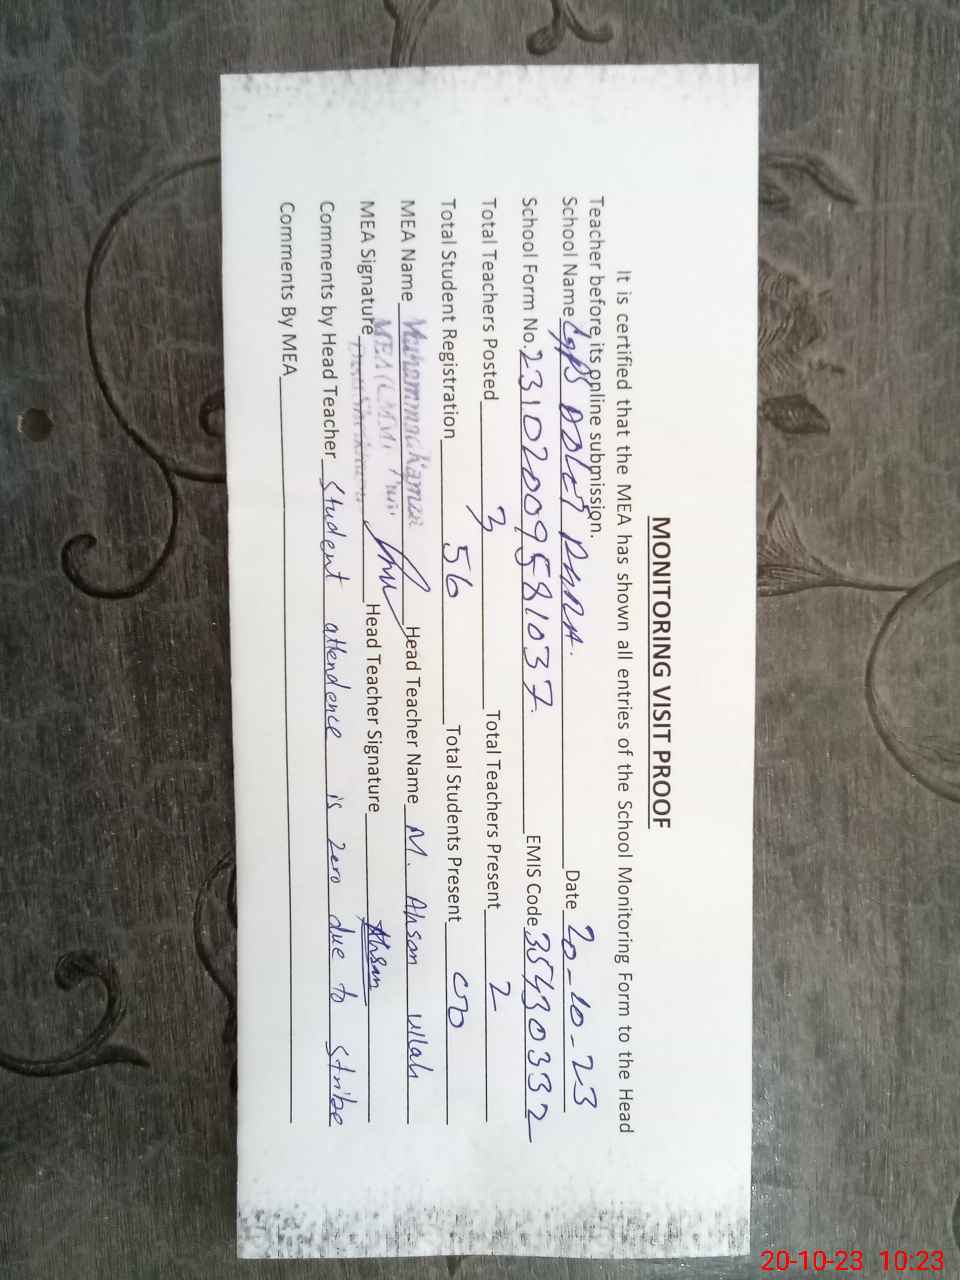 MONITORING VISIT PROOF
It is certified that the MEA has shown all entries of the School Monitoring Form to the Head
Teacher before its online submission.
School Name Date 20-10-23
School Form No. 23102009581037. EMIS Code 35430332
Total Teachers Posted 3 Total Teachers Present 2
Total Student Registration 56 Total Students Present 00
MEA Name Muhammad Head Teacher Name M. Ahsan ullah
MEA Signature Head Teacher Signature Ahsan
Comments by Head Teacher Student attendence is zero due to stribe
Comments By MEA
20-10-23 10:23